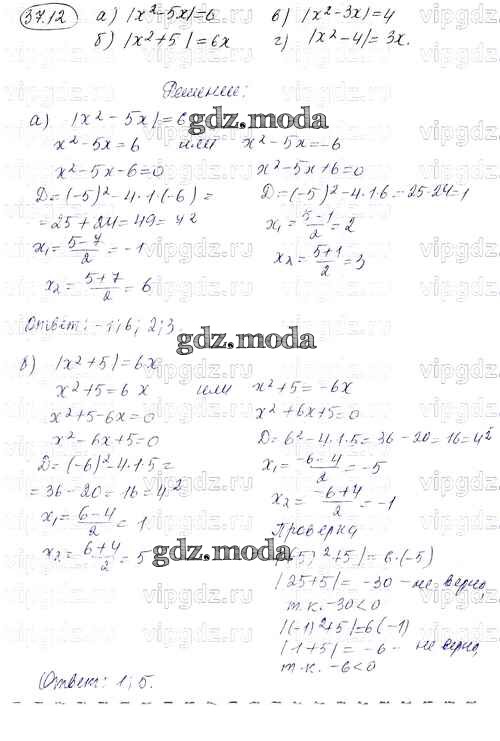 37.12 а) |x²-5x|=6 в) |x²-3x|=4
б) |x²+5|=6x г) |x²-4|=3x.
Решение:
а) |x²-5x|=6
x²-5x=6 или x²-5x=-6
x²-5x-6=0 x²-5x+6=0
D=(-5)²-4·1·(-6)= D=(-5)²-4·1·6=25-24=1
=25+24=49=7²
x₁=(5-7)/2=-1 x₁=(5-1)/2=2
x₂=(5+7)/2=6 x₂=(5+1)/2=3
Ответ: -1; 6; 2; 3
gdz.moda
б) |x²+5|=6x
x²+5=6x или x²+5=-6x
x²+5-6x=0 x²+6x+5=0
x²-6x+5=0 D=6²-4·1·5=36-20=16=4²
D=(-6)²-4·1·5= x₁=(-6-4)/2=-5
=36-20=16=4² x₂=(-6+4)/2=-1
x₁=(6-4)/2=1 Проверка
x₂=(6+4)/2=5 |(-5)²+5|=6·(-5)
|25+5|=-30 - не верно,
т.к. -30<0
|(-1)²+5|=6(-1)
|1+5|=-6 - не верно,
т.к. -6<0
Ответ: 1; 5.
gdz.moda
gdz.moda
vipgdz.ru